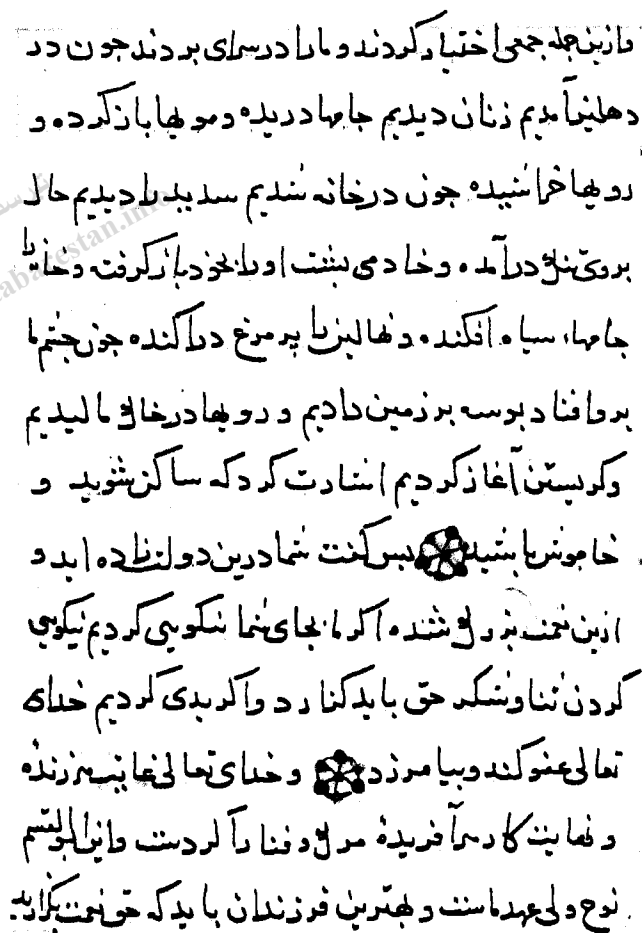 وازین جمله جمعی اختیار کردند و ما را در سرای بردند جون در
دهلیز آمدیم زنان دیدیم جامها دریده و مویها باز کرده و
رویها خراشیده جون در خانه شدیم سدید را دیدیم حال
بروی در آمده و خادمی بشت او را بخود باز گرفته و خانه را
جامهاء سیاه افکنده و نهالین را پر مرغ در آکنده جون جشم ما
برو افتاد بوسه بر زمین دادیم و رویها در خاک مالیدیم
و گریستن آغاز کردیم اشارت کرد که ساکن شوید و
خاموش باشید بس گفت شما درین دولت زاده اید و
ازین نعمت بزرگ شده اگر ما بجای شما نیکویی کردیم نیکویی
کردن ثنا و شکر حق باید گذارد و اگر بدی کردیم خدای
تعالی عفو کند و بیامرزد و خدای تعالی غایت هر زنده
و نهایت کار هر آفریده مرگ و فنا کردست و این ابو القسم
نوح ولی عهد ماست و بهترین فرزندان باید که حق نعمت بگزارید
tabarestan.info